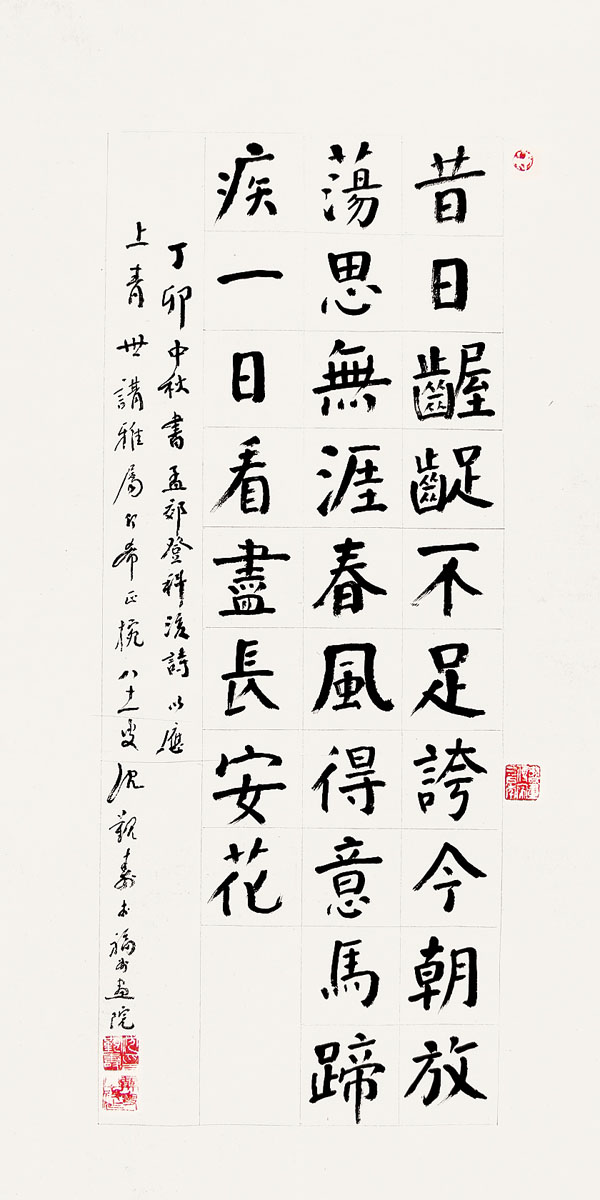 昔日齷齪不足誇今朝放
蕩思無涯春風得意馬蹄
疾一日看盡長安花
丁卯中秋書孟郊登科後詩以應
上青世講雅屬於希正捥八十二叟沈覲壽於福州畫院